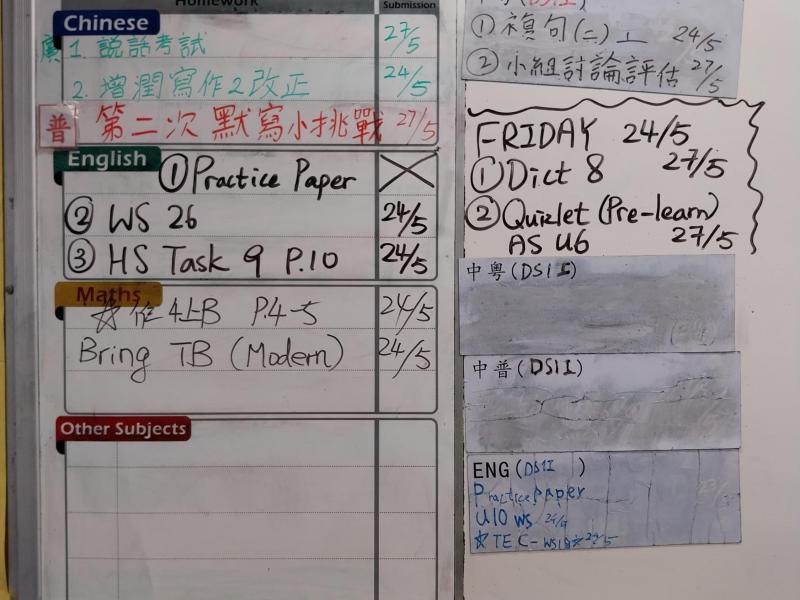 Homework
Submission
Chinese
廣 1. 說話考試 27/5
2. 增潤寫作2改正 24/5
普 第二次 默寫小挑戰 27/5
English
① Practice Paper
② WS 26 24/5
③ HS Task 9 P.10 24/5
Maths
☆作4上B P.4-5 24/5
Bring TB (Modern) 24/5
Other Subjects
(DSII)
① 複句(二)工 24/5
② 小組討論評估 27/5
FRIDAY 24/5
① Dict 8 27/5
② Quizlet (Pre-learn)
AS U6 27/5
中粵(DSII)
中普(DSII)
ENG(DSII )
Practice paper
U10 WS
☆TE C-